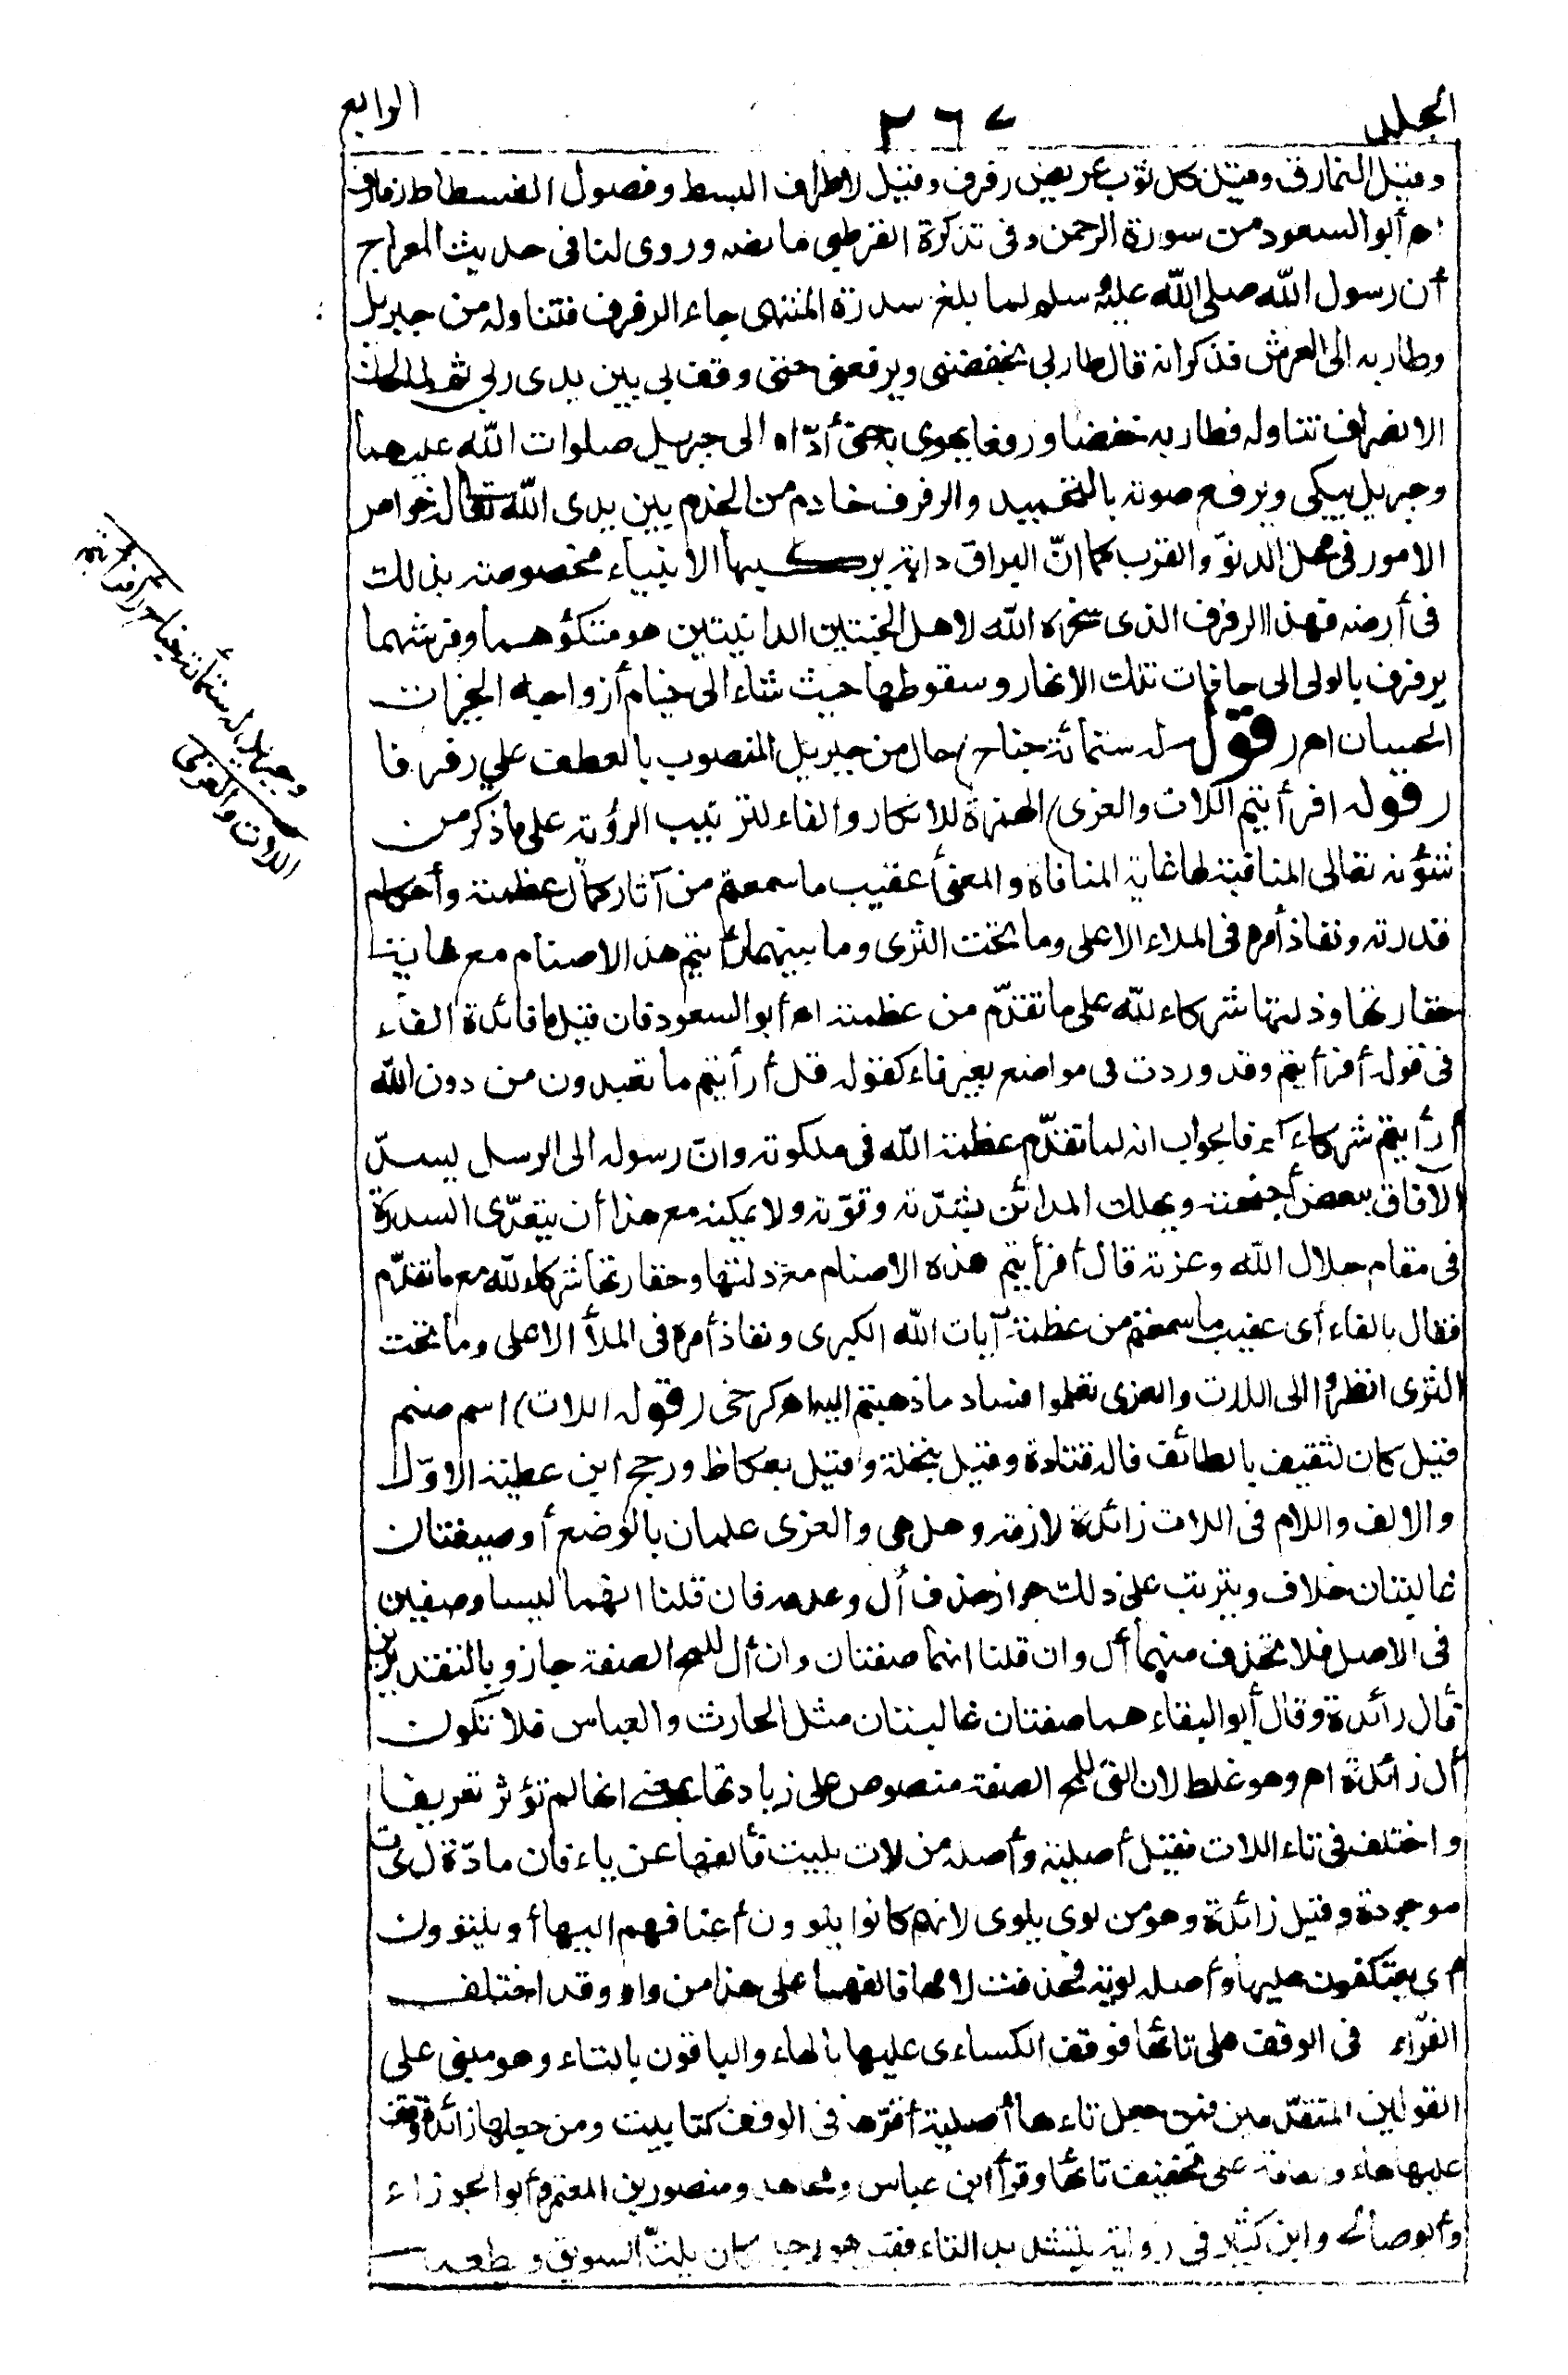 الجلد
٢٦٧
الرابع
وقيل النمارق وقيل كل ثوب عريض رفرف وقيل لاطراف البسط وفضول الفسطاط رفارف
اه أبو السعود من سورة الرحمن وفى تذكرة القرطبى ما نصه وروى لنا فى حديث المعراج
أن رسول الله صلى الله عليه وسلم لما بلغ سدرة المنتهى جاء الرفرف فتناوله من جبريل
وطار به الى العرش فذكر انه قال طار بى يخفضنى ويرفعنى حتى وقف بى بين يدى ربى ثم لما حان
الانصراف تناوله فطار به خفضا ورفعا يهوى به حتى أدّاه الى جبريل صلوات الله عليهما
وجبريل يبكى ويرفع صوته بالتحميد والرفرف خادم من الخدم بين يدى الله تعالى له خواص
الامور فى محل الدنوّ والقرب كما انّ البراق دابة يركبها الانبياء مخصوصة بذلك
فى أرضه فهذا الرفرف الذى سخره الله لاهل الجنتين الدانيتين هو متكؤهما وفرشهما
يرفرف بالولى الى حافات تلك الانهار وسقوطها حيث شاء الى خيام أزواجه الخيرات
الحسان اه (قوله له ستمائة جناح) حال من جبريل المنصوب بالعطف على رفرفا
(قوله افرأيتم اللات والعزى) الهمزة للانكار والفاء لترتيب الرؤية على ما ذكر من
شؤنه تعالى المنافية لها غاية المنافاة والمعنى أعقيب ما سمعتم من آثار كمال عظمته وأحكام
قدرته ونفاذ أمره فى الملاء الاعلى وما تحت الثرى وما بينهما رأيتم هذه الاصنام مع غاية
حقارتها وذلتها شركاء لله على ما تقدّم من عظمته اه أبو السعود فان قيل ما فائدة الفاء
فى قوله أفرأيتم وقد وردت فى مواضع بغير فاء كقوله قل أرأيتم ما تعبدون من دون الله
أرأيتم شركاءكم فالجواب انه لما تقدّم عظمة الله فى ملكوته وانّ رسوله الى الرسل يسدّ
الآفاق ببعض أجنحته ويهلك المدائن بشدّته وقوّته ولا يمكنه مع هذا أن يتعدّى السدرة
فى مقام جلال الله وعزته قال أفرأيتم هذه الاصنام مع ذلتها وحقارتها شركاء لله مع ما تقدّم
فقال بالفاء أى عقيب ما سمعتم من عظمة آيات الله الكبرى ونفاذ أمره فى الملأ الاعلى وما تحت
الثرى انظروا الى اللات والعزى تعلموا فساد ما ذهبتم اليه اه كرخى (قوله اللات) اسم صنم
قيل كان لثقيف بالطائف قاله قتادة وقيل بنخلة وقيل بعكاظ ورجح ابن عطية الاوّل
والالف واللام فى اللات زائدة لازمة وهل هى والعزى علمان بالوضع أو صفتان
غالبتان خلاف ويترتب على ذلك جواز حذف أل وعدمه فان قلنا انهما ليسا وصفين
فى الاصل فلا تحذف منهما أل وان قلنا انهما صفتان وان أل للمح الصفة جاز وبالتقديرين
فأل زائدة وقال أبو البقاء هما صفتان غالبتان مثل الحارث والعباس فلا تكون
أل زائدة اه وهو غلط لان التى للمح الصفة منصوص على زيادتها بمعنى انها لم تؤثر تعريفا
واختلف فى تاء اللات فقيل أصلية وأصله من لات يليت فألفها عن ياء فان مادّة ل ى ت
موجودة وقيل زائدة وهو من لوى يلوى لانهم كانوا يلوون أعناقهم اليها أو يلتوون
أى يعتكفون عليها وأصله لوية فحذفت لامها فالفها على هذا من واو وقد اختلف
القرّاء فى الوقف على تائها فوقف الكساءى عليها بالهاء والباقون بالتاء وهو مبنى على
القولين المتقدّمين فمن جعل تاءها أصلية أقرّها فى الوقف كتابيت ومن جعلها زائدة وقف
عليها هاء والعامة على تخفيف تائها وقرأ ابن عباس ومجاهد ومنصور بن المعتمر وأبو الجوزاء
وأبو صالح وابن كثير فى رواية بتشديد التاء فقيل هو رجل كان يلتّ السويق ويطعمه
وجبريل له ستمائة جناح (أفرأيتم
اللات والعزى